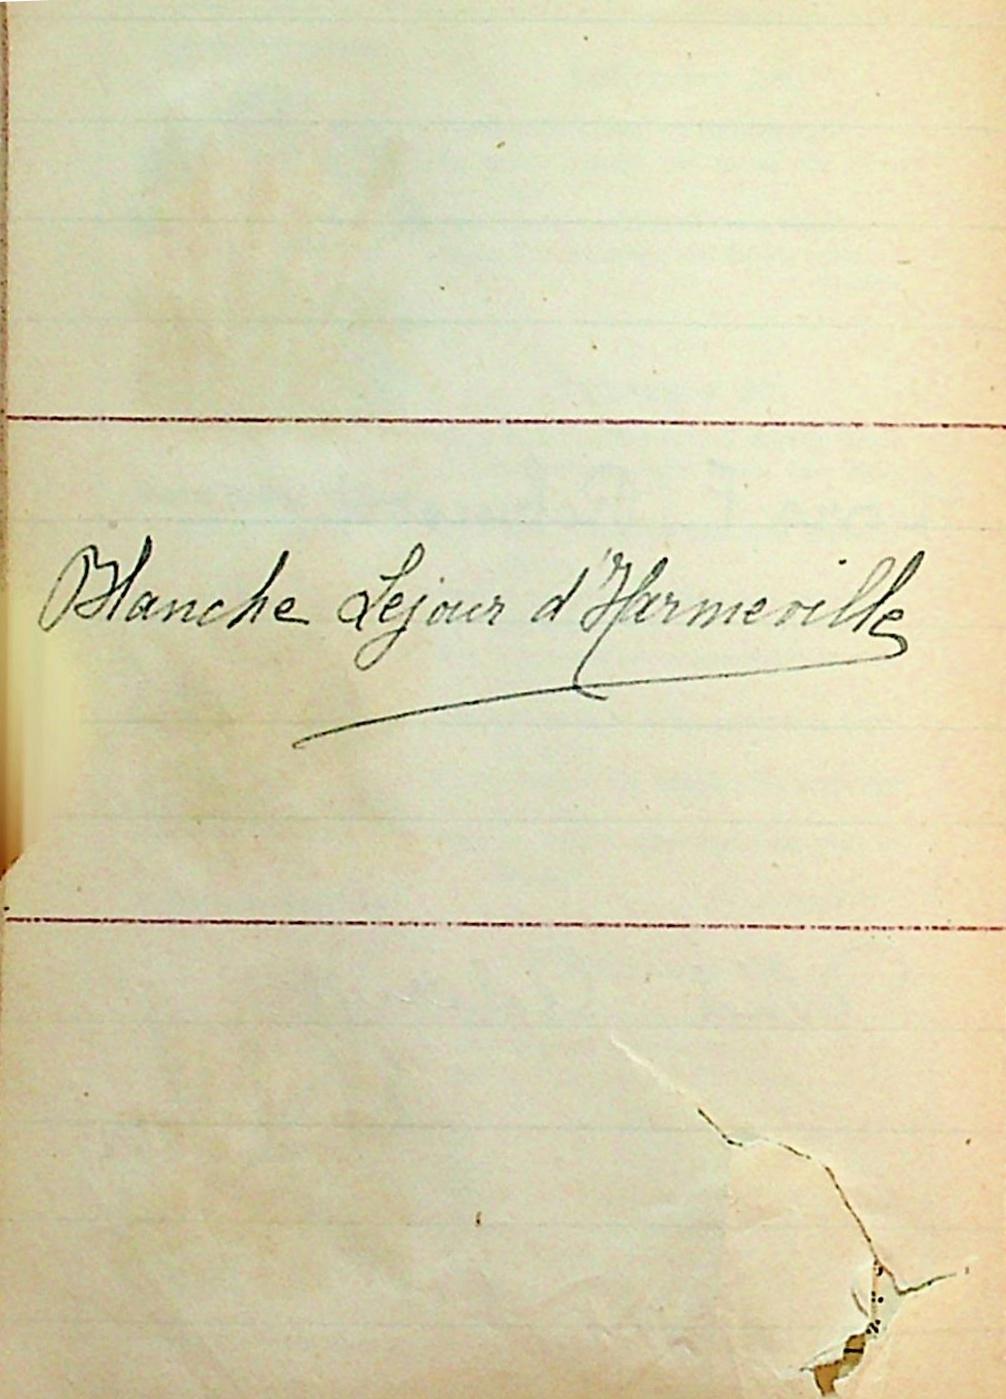 Blanche Lejour d'Harmeville